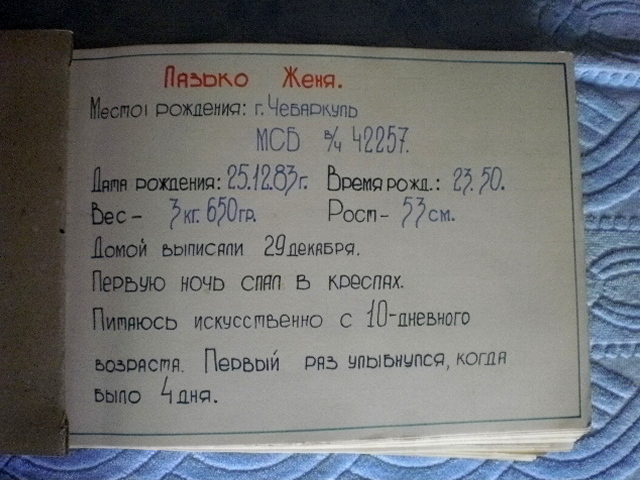 Лазько Женя.
Место рождения: г. Чебаркуль
МСБ в/ч 42257.
Дата рождения: 25.12.83г. Время рожд.: 23.50.
Вес - 3 кг. 650гр. Рост - 53 см.
Домой выписали 29 декабря.
Первую ночь спал в креслах.
Питаюсь искусственно с 10-дневного
возраста. Первый раз улыбнулся, когда
было 4 дня.